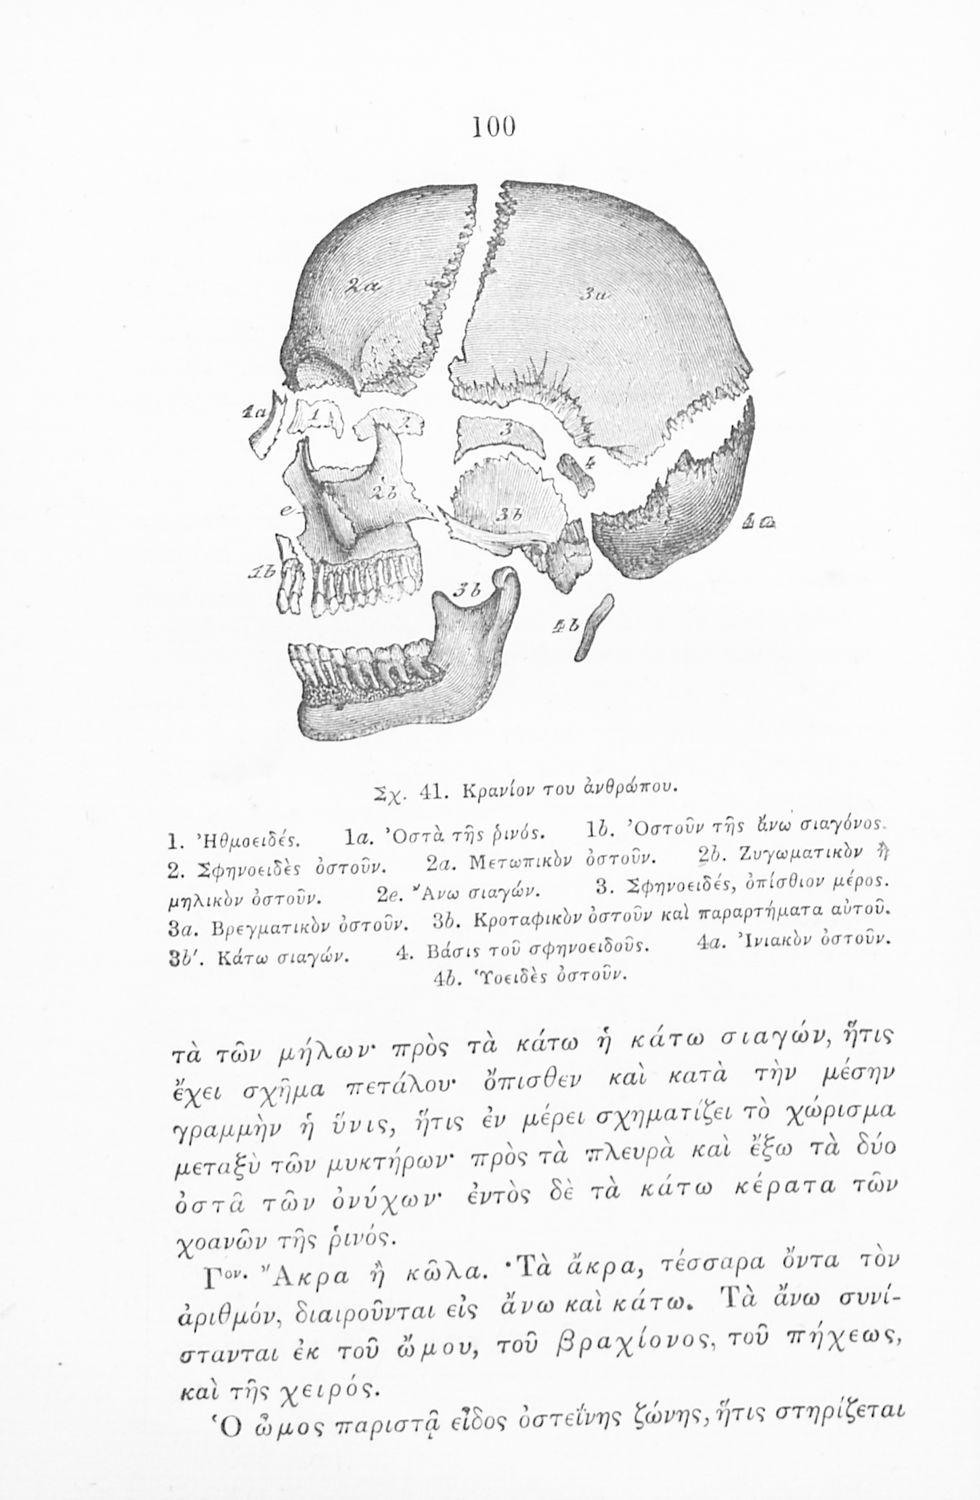 100
2a
3a
1a
1
2
3
4
2b
3b
e
4a
1b
3b
4b
Σχ. 41. Κρανίον του ἀνθρώπου.
1. Ἠθμοειδές. 1a. Ὀστὰ τῆς ῥινός. 1b. Ὀστοῦν τῆς ἄνω σιαγόνος.
2. Σφηνοειδὲς ὀστοῦν. 2a. Μετωπικὸν ὀστοῦν. 2b. Ζυγωματικὸν ἢ
μηλικὸν ὀστοῦν. 2e. Ἄνω σιαγών. 3. Σφηνοειδές, ὀπίσθιον μέρος.
3a. Βρεγματικὸν ὀστοῦν. 3b. Κροταφικὸν ὀστοῦν καὶ παραρτήματα αὐτοῦ.
3b'. Κάτω σιαγών. 4. Βάσις τοῦ σφηνοειδοῦς. 4a. Ἰνιακὸν ὀστοῦν.
4b. Ὑοειδὲς ὀστοῦν.
τὰ τῶν μήλων· πρὸς τὰ κάτω ἡ κάτω σιαγών, ἥτις
ἔχει σχῆμα πετάλου· ὄπισθεν καὶ κατὰ τὴν μέσην
γραμμὴν ἡ ὕνις, ἥτις ἐν μέρει σχηματίζει τὸ χώρισμα
μεταξὺ τῶν μυκτήρων· πρὸς τὰ πλευρὰ καὶ ἔξω τὰ δύο
ὀστᾶ τῶν ὀνύχων· ἐντὸς δὲ τὰ κάτω κέρατα τῶν
χοανῶν τῆς ῥινός.
Γον. Ἄκρα ἢ κῶλα. Τὰ ἄκρα, τέσσαρα ὄντα τὸν
ἀριθμόν, διαιροῦνται εἰς ἄνω καὶ κάτω. Τὰ ἄνω συνί-
στανται ἐκ τοῦ ὤμου, τοῦ βραχίονος, τοῦ πήχεως,
καὶ τῆς χειρός.
Ὁ ὦμος παριστᾷ εἶδος ὀστεΐνης ζώνης, ἥτις στηρίζεται